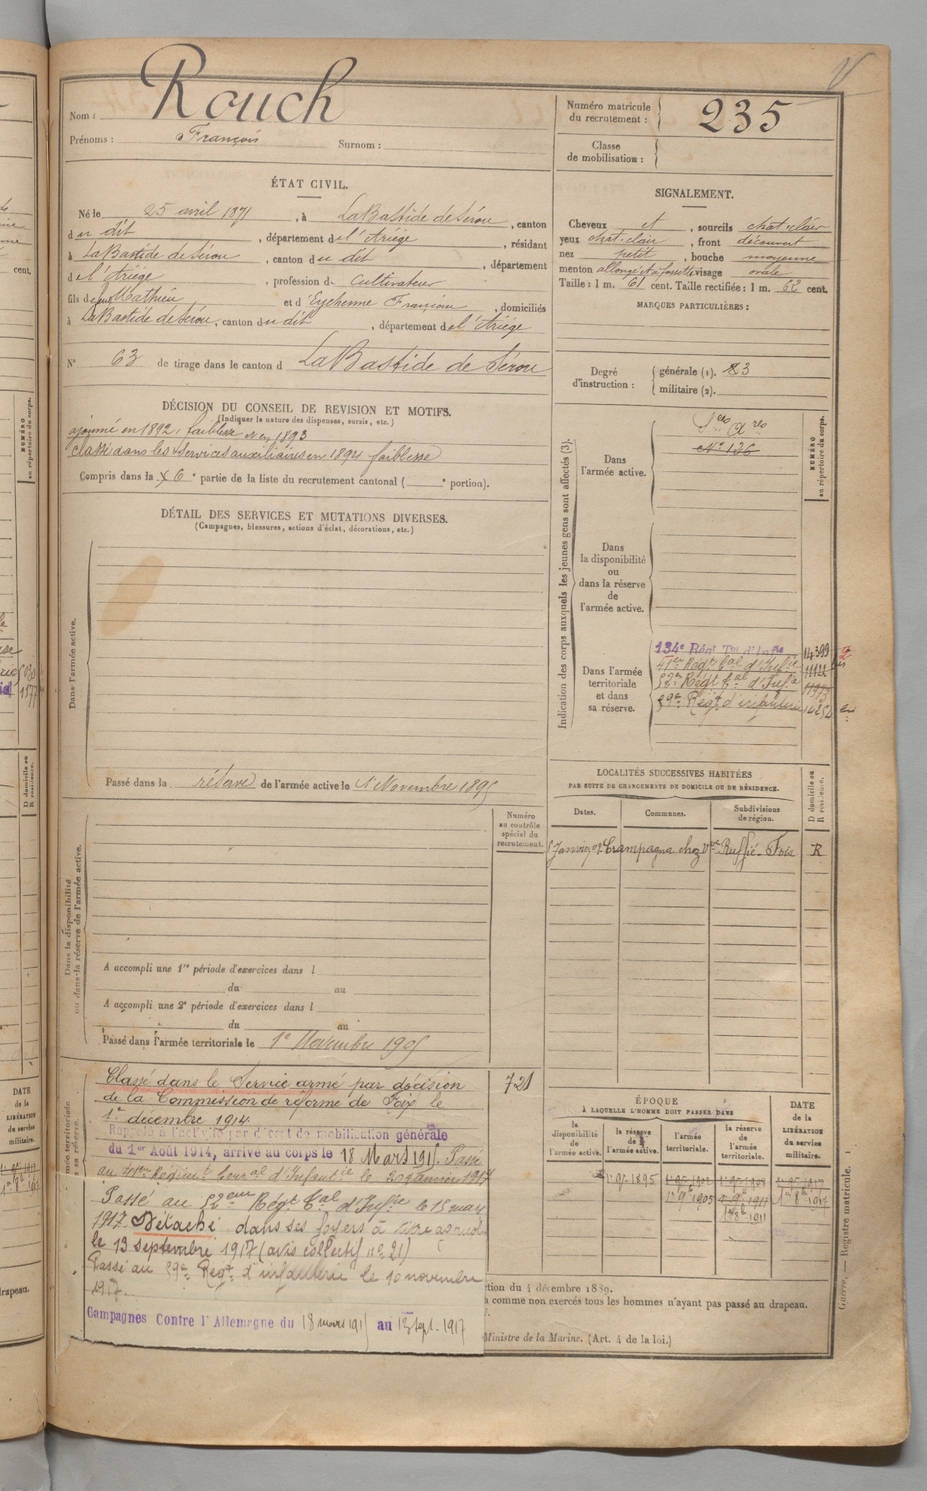 Nom : Rouch
Prénoms : François Surnom :
Numéro matricule du recrutement : 235
Classe de mobilisation :
ÉTAT CIVIL.
Né le 25 avril 1871, à LaBastide de Sérou, canton
du dit, département de l'Ariège, résidant
à LaBastide de Sérou, canton du dit, département
de l'Ariège, profession de Cultivateur
fils de feu Mathieu et d'Eychenne Françoise, domiciliés
à LaBastide de Sérou, canton du dit, département de l'Ariège
N° 63 de tirage dans le canton d LaBastide de Sérou
SIGNALEMENT.
Cheveux et, sourcils chat-clair
yeux chat-clair, front découvert
nez petit, bouche moyenne
menton allongé et à fossette visage ovale
Taille : 1 m. 61 cent. Taille rectifiée : 1 m. 62 cent.
MARQUES PARTICULIÈRES :
Degré d'instruction :
générale (1). 3
militaire (2).
DÉCISION DU CONSEIL DE REVISION ET MOTIFS.
(Indiquer la nature des dispenses, sursis, etc.)
ajourné en 1892, faiblesse et en 1893
classé dans les services auxiliaires en 1894 faiblesse
Compris dans la 6e partie de la liste du recrutement cantonal ( e portion).
DÉTAIL DES SERVICES ET MUTATIONS DIVERSES.
(Campagnes, blessures, actions d'éclat, décorations, etc.)
Dans l'armée active.
Passé dans la réserve de l'armée active le 1 Novembre 1895
Indication des corps auxquels les jeunes gens sont affectés (3).
NUMÉRO au répertoire du corps.
Dans l'armée active.
N° 136
Dans la disponibilité ou dans la réserve de l'armée active.
Dans l'armée territoriale et dans sa réserve.
134e Régt Tal d'Infie
52e Régt Cal d'Infie
59e Régt d'infanterie
LOCALITÉS SUCCESSIVES HABITÉES
PAR SUITE DE CHANGEMENTS DE DOMICILE OU DE RÉSIDENCE.
D domicile ou R résidence.
Dates. Communes. Subdivisions de région.
Campagna chez Vve Ruffié - Foix R
Numéro au contrôle spécial du recrutement.
Dans la disponibilité ou dans la réserve de l'armée active.
A accompli une 1re période d'exercices dans l
du au
A accompli une 2e période d'exercices dans l
du au
Passé dans l'armée territoriale le 1er Novembre 1905
721
Classé dans le Service armé par décision
de la Commission de réforme de Foix le
1er décembre 1914
Rappelé à l'activité par décret de mobilisation générale
du 1er Août 1914, arrivé au corps le 18 Mars 1915. Passé
au Régiment d'Infanterie le 20 janvier 1917
Passé au 52eme Régt Cal d'Infie le 15 mars
1917. Détaché dans ses foyers à titre agricole
le 13 Septembre 1917 (avis collectif n° 21)
Passé au 59e Régt d'infanterie le 10 novembre
1917.
Campagnes Contre l'Allemagne du 18 mars 1915 au 13 Sept. 1917
ÉPOQUE
À LAQUELLE L'HOMME DOIT PASSER DANS
la disponibilité de l'armée active. la réserve de l'armée active. l'armée territoriale. la réserve de l'armée territoriale.
DATE de la LIBÉRATION du service militaire.
1er 9bre 1895
1er 9bre 1905
ction du 4 décembre 1889.
a comme non exercés tous les hommes n'ayant pas passé au drapeau.
Ministre de la Marine. (Art. 4 de la loi.)
Guerre. — Registre matricule. 1